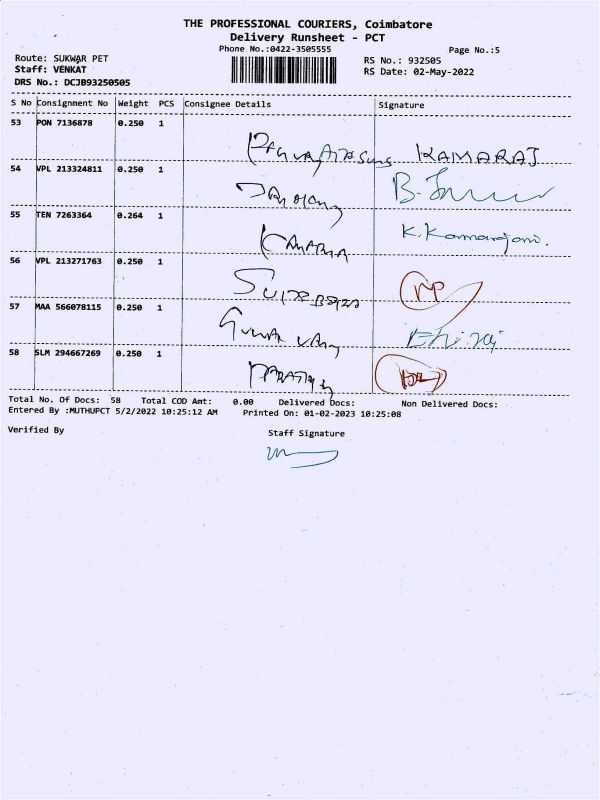 THE PROFESSIONAL COURIERS, Coimbatore
Delivery Runsheet - PCT
Phone No.:0422-3505555
Page No.:5
Route: SUKWAR PET
RS No.: 932505
Staff: VENKAT
RS Date: 02-May-2022
DRS No.: DCJB93250505
S No Consignment No Weight PCS Consignee Details Signature
53 PON 7136878 0.250 1
KAMARAJ
54 VPL 213324811 0.250 1
55 TEN 7263364 0.264 1
K. Kamarajani.
56 VPL 213271763 0.250 1
57 MAA 566078115 0.250 1
58 SLM 294667269 0.250 1
Total No. Of Docs: 58 Total COD Amt: 0.00 Delivered Docs: Non Delivered Docs:
Entered By :MUTHUPCT 5/2/2022 10:25:12 AM Printed On: 01-02-2023 10:25:08
Verified By Staff Signature